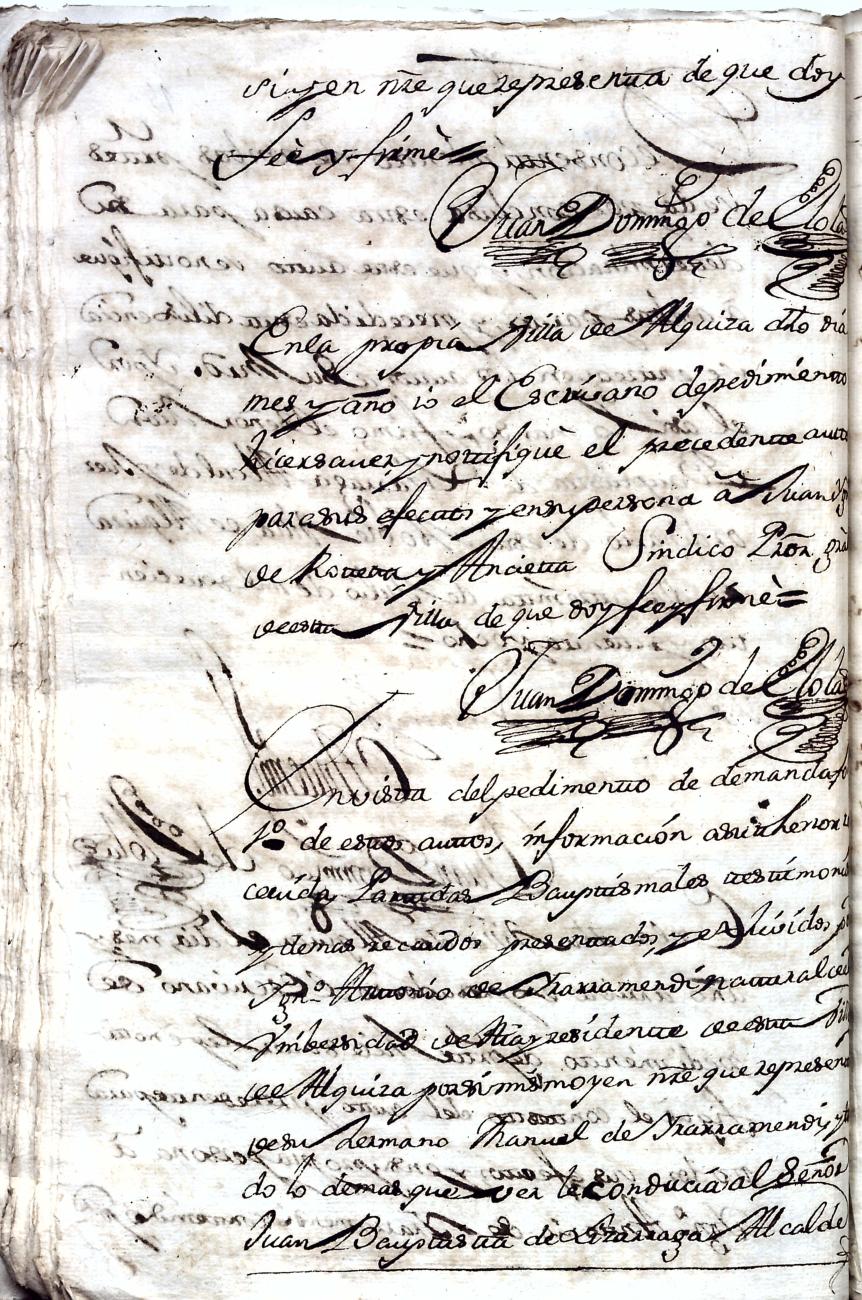 si, y en nře que representta de que doy
feè y firmè
Juan Domingo de Olo
En la propia Villa de Alquiza dho dia
mes y año io el Escrivano de pedimiento
hice saver, y nottifiquè el precedentte autto
para sus efecttos y en su persona â Juan
de Rotteta y Anciētta Sindico Pror. gral
de estta Villa de que doy fee y firmè =
Juan Domingo de Olo
En vistta del pedimentto de demanda, fo
1º. de esttos auttos, información a su thenor re
cevida Parttidas Bapttismales testimoni
y demas recaudos presenttados, y exsividos p
Ygn.º Anttonio de Yrarramendi natural de
Vnibersidad de Aia y residentte de estta Villa
de Alquiza por si mismo y en nře que represen
de su hermano Manuel de Yrarramendi y to
do lo demas que ver le conducia al Señor
Juan Bapttistta de Alcalde